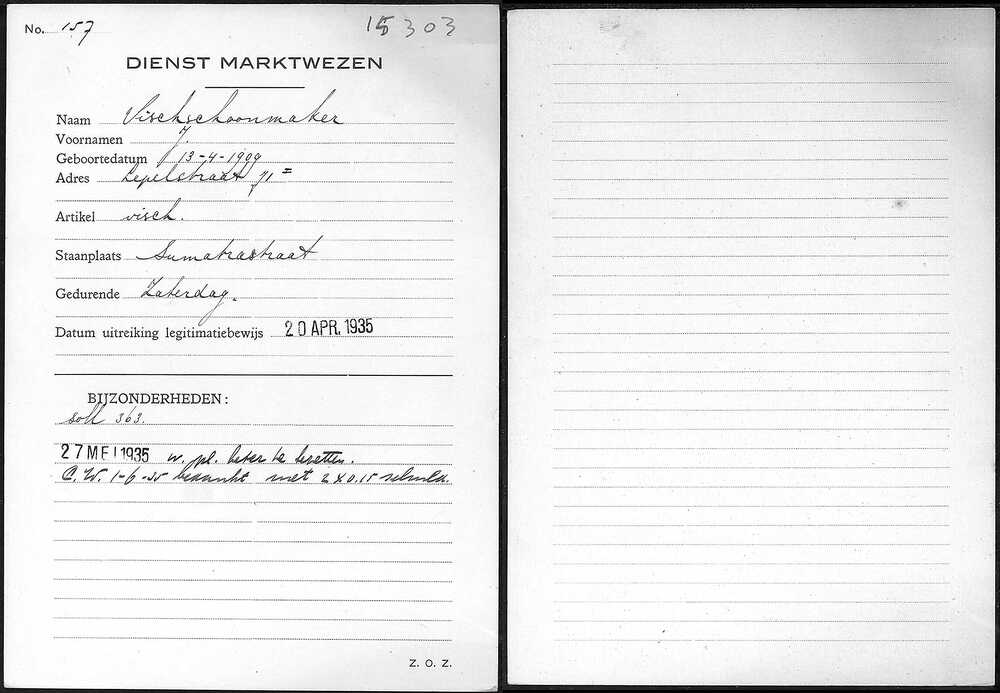 No. 157
15303
DIENST MARKTWEZEN
Naam Vischschoonmaker
Voornamen J.
Geboortedatum 13-4-1909
Adres Lepelstraat 71 II
Artikel visch.
Staanplaats Sumatrastraat
Gedurende Zaterdag.
Datum uitreiking legitimatiebewijs 20 APR. 1935
BIJZONDERHEDEN:
soll 363.
27 MEI 1935 w. pl. beter te bezetten.
C.W. 1-6-35 bekunkt met 2 x 0.15 schuld.
Z. O. Z.